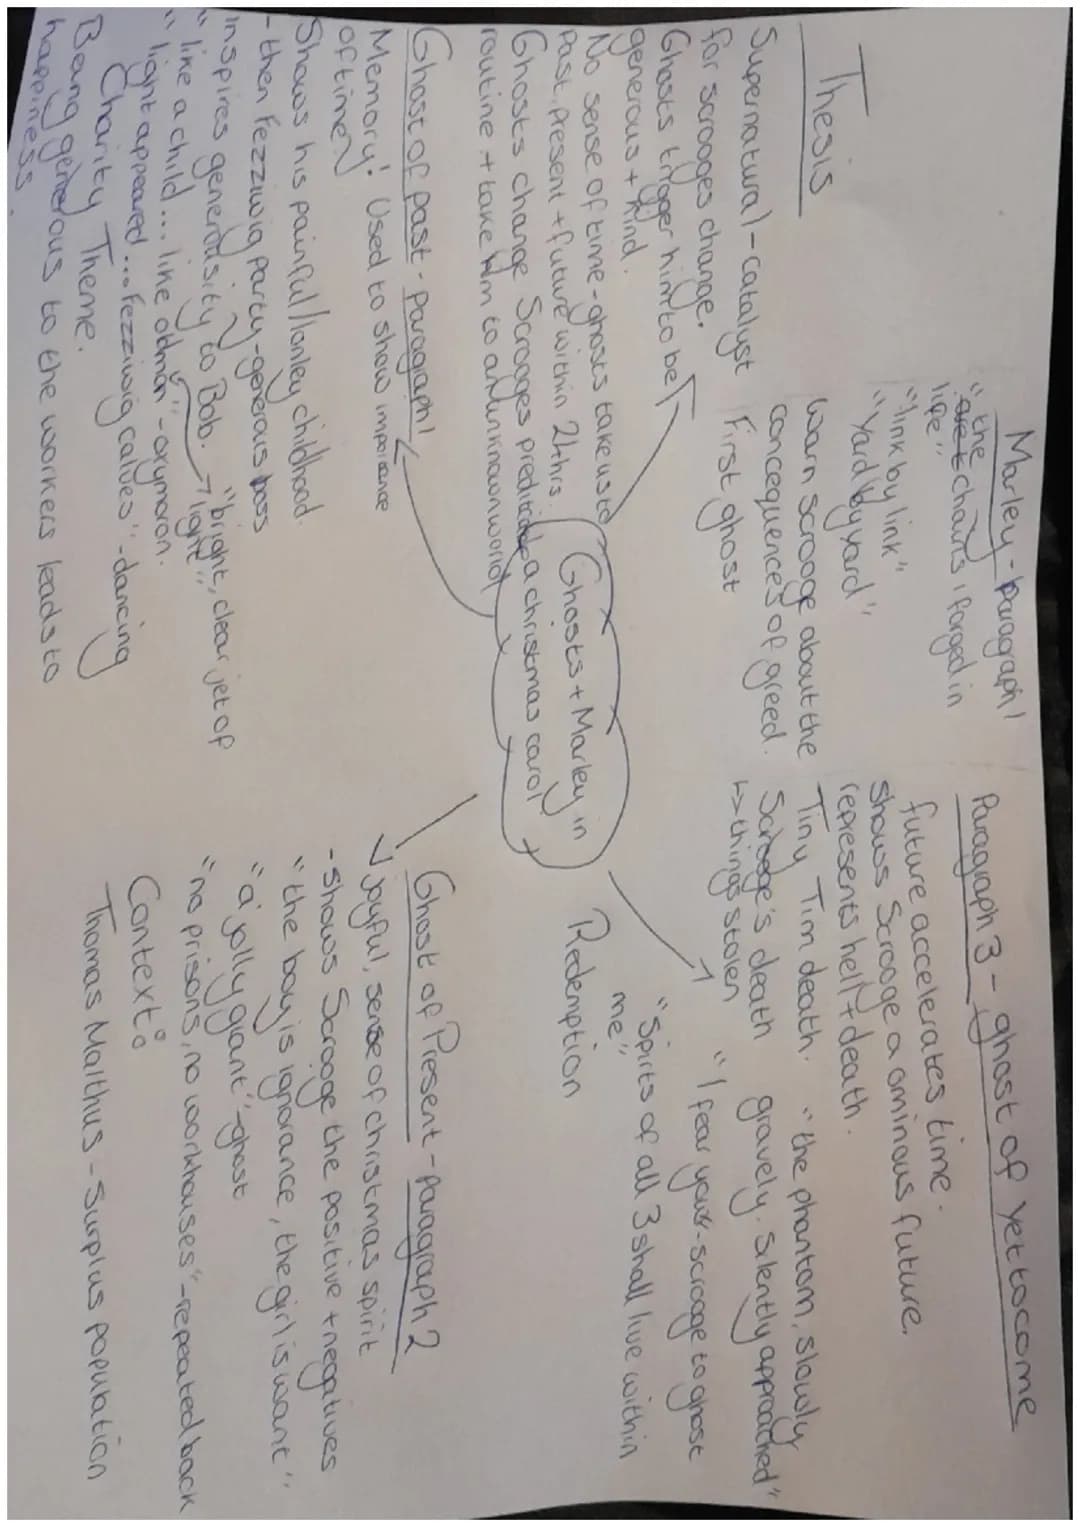 Thesis
Supernatural-catalyst
for scrooges change.
Ghosts trigger him to be
generous + kind.
No sense of time-ghosts take us to
past, present + future within 24hrs.
Ghosts change Scrooges
routine + take him to an unknown world
Marley-paragraph 1
"the chains i forged in
life"
"link by link"
"Yard by yard"
warn scrooge about the
concequences of greed.
First ghost
Paragraph 3 - ghost of yet to come
future accelerates time.
shows Scrooge a ominous future.
represents hell + death.
Tiny Tim death.
Scrooge's death
↳>things stolen
"the phantom, slowly
gravely. silently approached"
"I fear you"-scrooge to ghost
"Spirits of all 3 shall live within
me"
Redemption
Ghosts + Marley in
a christmas carol
Ghost of past-paragraph 1
Memory! Used to show importance
of time
Shows his painful/lonley childhood.
-then Fezziwig party-generous boss
inspires generousity to Bob.
"like a child... like old man"-oxymoron.
→ "bright, clear jet of
light"
"light appeared... Fezziwig calves"-dancing
Charity Theme.
Being generous to the workers leads to
happiness.
Ghost of Present-paragraph 2
joyful, sense of christmas spirit
-shows Scrooge the positive + negatives
"the boy is ignorance, the girl is want"
"a jolly giant"-ghost
"no prisons, no workhouses"-repeated back
Context:
Thomas Malthus-Surplus population